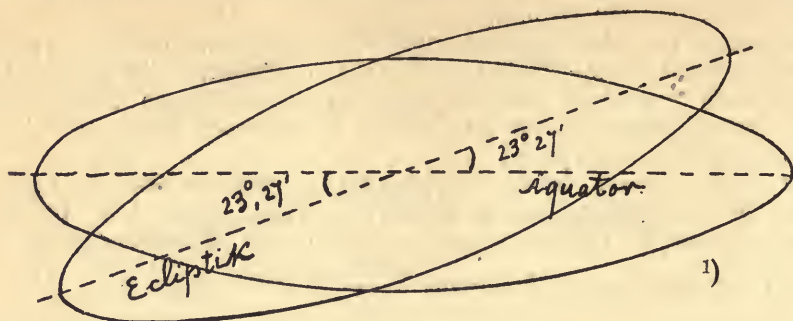 23° 27'
23°, 27'
Aquator.
Ecliptik
1)